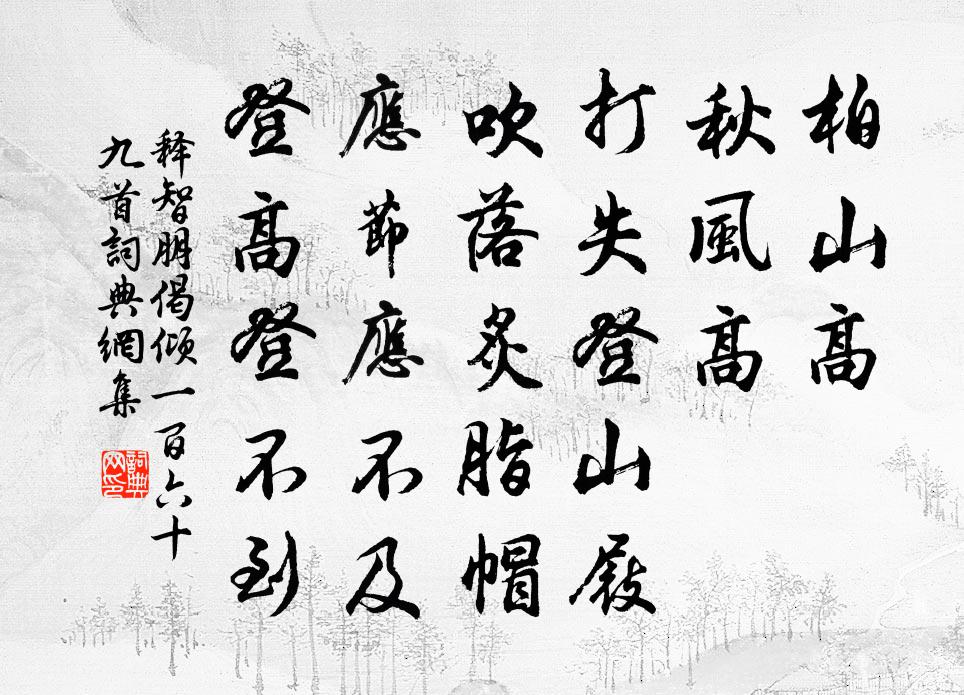 柏山高
秋風高
打失登山屐
吹落炙脂帽
應節應不及
登高登不到
释智朋偈倾一百六十
九首詞典網集